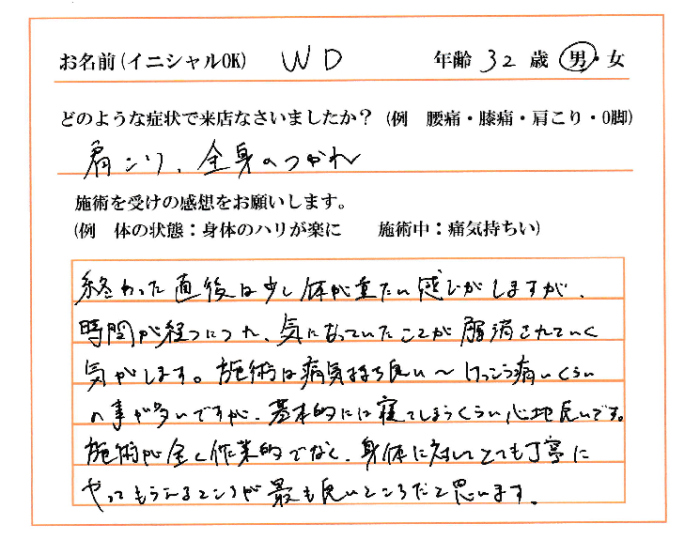 お名前(イニシャルOK) WD 年齢 32 歳 男・女
どのような症状で来店なさいましたか？(例 腰痛・膝痛・肩こり・O脚)
肩こり、全身のつかれ
施術を受けの感想をお願いします。
(例 体の状態：身体のハリが楽に 施術中：痛気持ちい)
終わった直後は少し体が重たい感じがしますが、
時間が経つにつれ、気になっていたことが解消されていく
気がします。施術は痛気持ち良い〜けっこう痛いくらい
の事が多いですが、基本的には寝てしまうくらい心地良いです。
施術が全く作業的でなく、身体に対してとても丁寧に
やってもらえるところが最も良いところだと思います。